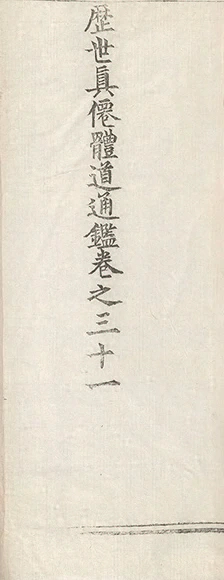 歴世真僊體道通鑑卷之三十一